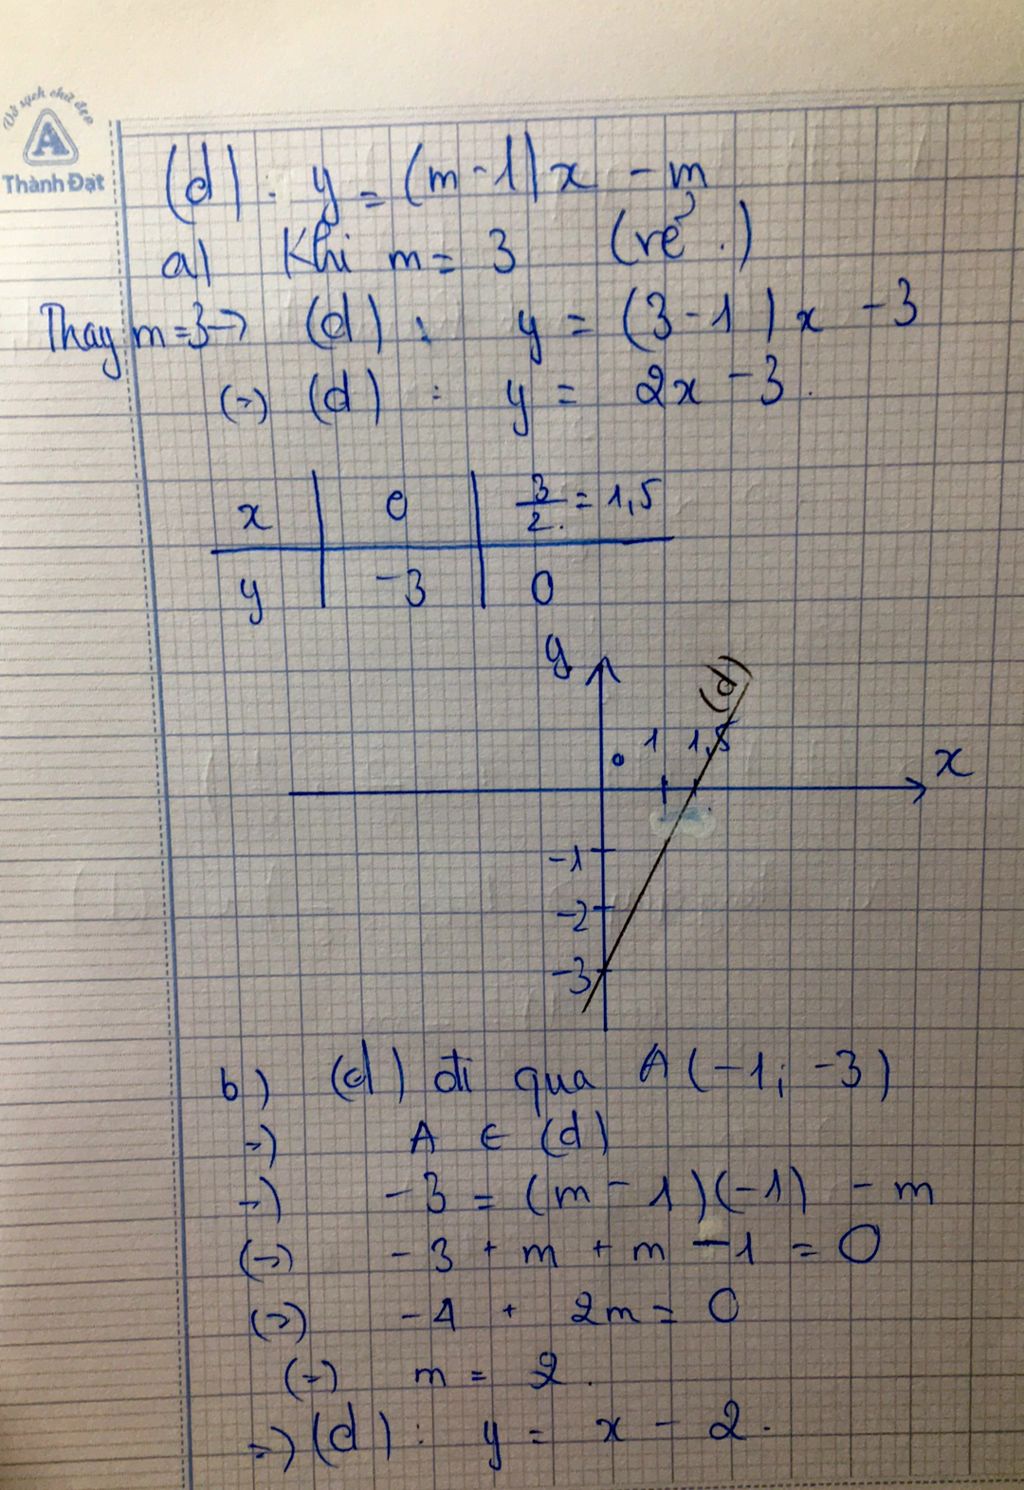 Vở sạch chữ đẹp
A
Thành Đạt
(d) : y = (m-1)x - m
a) Khi m = 3 (vẽ .)
Thay m=3 → (d) : y = (3-1)x -3
(=) (d) : y = 2x -3.
x | 0 | 3/2 = 1,5
y | -3 | 0
y
(d)
0 1 1,5 x
-1
-2
-3
b) (d) đi qua A(-1; -3)
=) A ∈ (d)
=) -3 = (m - 1)(-1) - m
(=) -3 + m + m - 1 = 0
(=) -4 + 2m = 0
(=) m = 2.
=) (d) : y = x - 2.